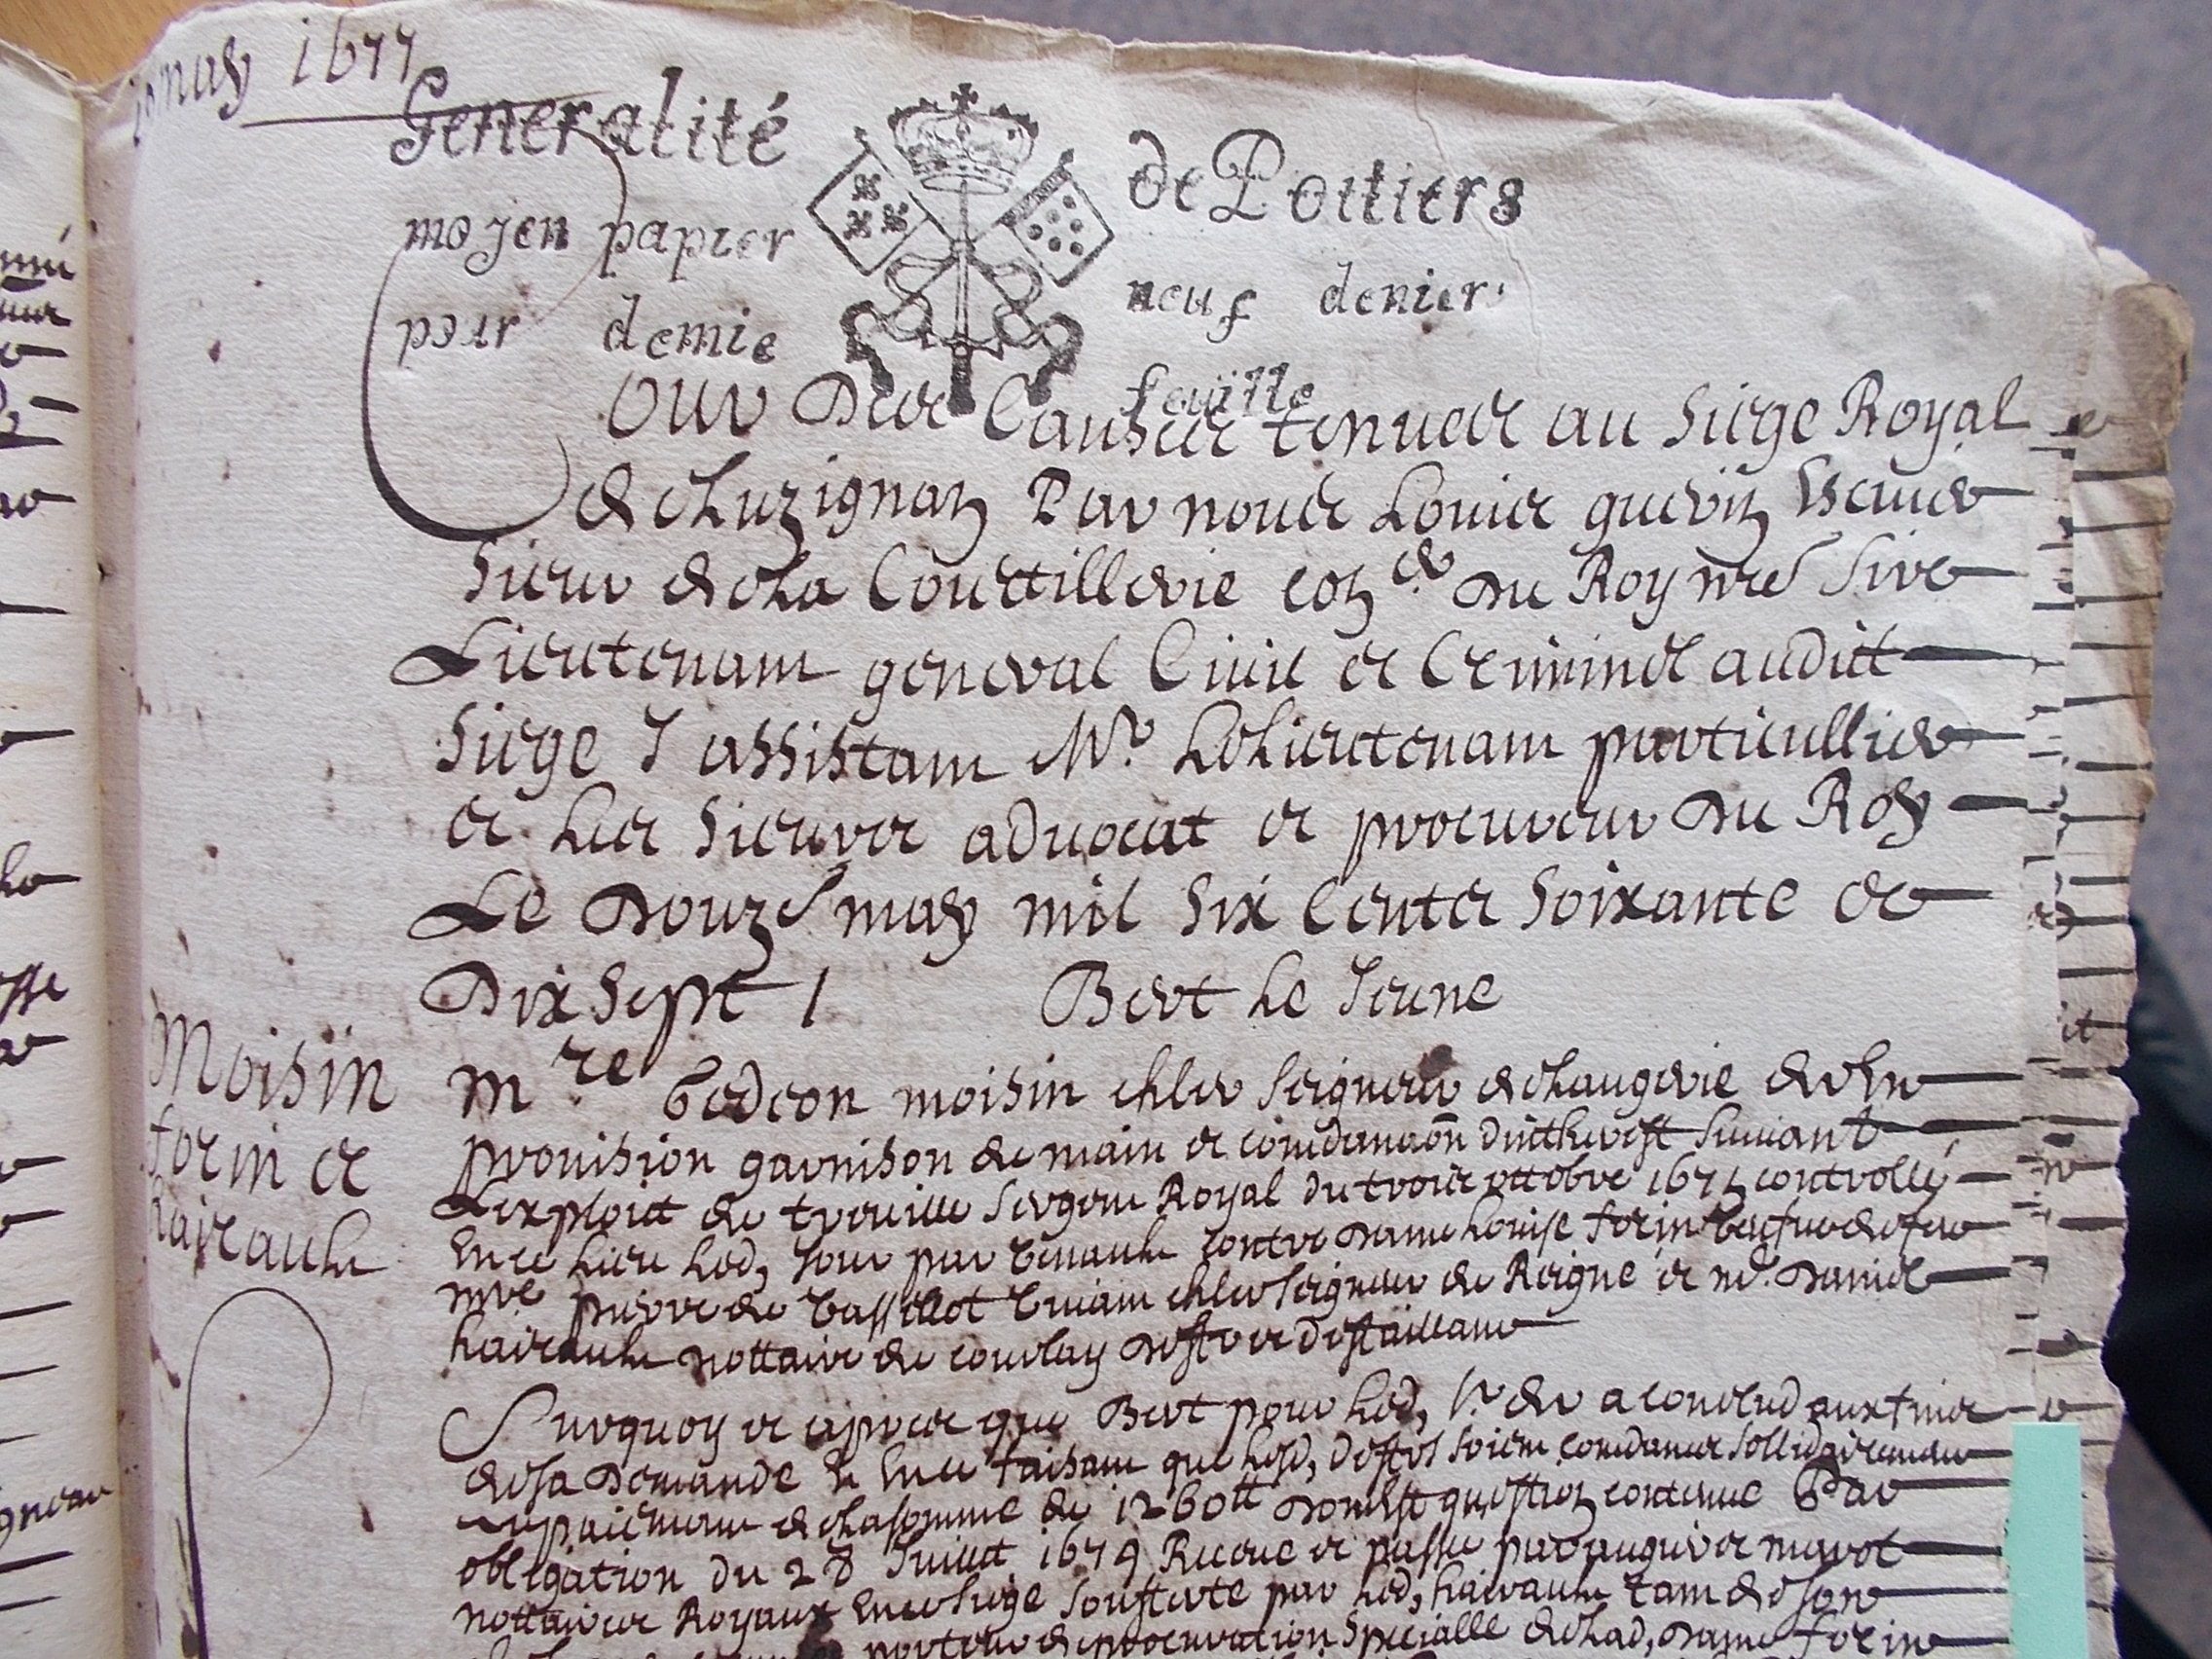 may 1677
Generalité de Poitiers
moyen papier neuf deniers
pour demie feuille
Jour Des Causes tenues au Siege Royal
de Luzignan Par nous Louis guerin Escuier
Sieur de La Courtillerie con er du Roy nre Sire
Lieutenant general Civil et Criminel audit
Siege Y assistant Mr Le Lieutenant particullier
et Les Sieurs advocat et procureur du Roy
Le Douze may mil Six Cents Soixante et
Dix Sept / Bert Le Jeune
Moisin
forin et
hairault
Mre Gedeon moisin chler Seigneur de Laugerie der En
provision garnison de main et condemnaon dintherest Suivant
Lexploit de Sergent Royal du trois octobre controllé
En ce Lieu Led, Jour par contre dame Louise forin veufve de feu
mre pierre de chler Seigneur de Reigne et Me Daniel
hairault nottaire de coulay deffr et deffaillans
Surquoy et apres que Bert pour Led, Sr der a conclud aux fins
de sa Demande Et En ce faisant que Lesd, deffrs Soient condamnes Sollidairement
au paiement de La somme de 1260tt dont est question contenue Par
obligation du 28 Juillet 1674 Receue et passee par et marot
nottaires Royaux En ce Siege Soufferte par Led, hairault tant de son
porteur de procuration Specialle de Lad, dame forin